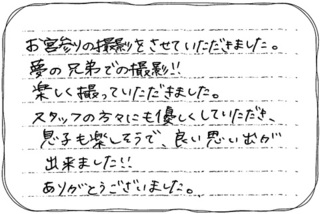 お宮参りの撮影をさせていただきました。
夢の兄弟での撮影!!
楽しく撮っていただきました。
スタッフの方々にも優しくしていただき、
息子も楽しそうで、良い思い出が
出来ました!!
ありがとうございました。